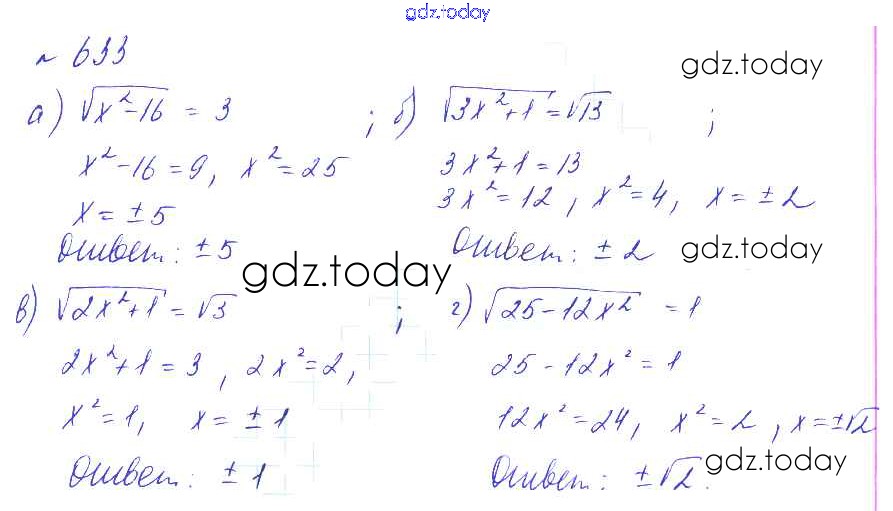 gdz.today
№ 633
gdz.today
а) √(x²-16) = 3 ;
x²-16=9, x²=25
x=±5
Ответ: ±5
б) √(3x²+1)=√13 ;
3x²+1=13
3x²=12, x²=4, x=±2
Ответ: ±2
gdz.today
gdz.today
в) √(2x²+1)=√3 ;
2x²+1=3, 2x²=2,
x²=1, x=±1
Ответ: ±1
г) √(25-12x²) =1
25-12x²=1
12x²=24, x²=2, x=±√2
Ответ: ±√2.
gdz.today